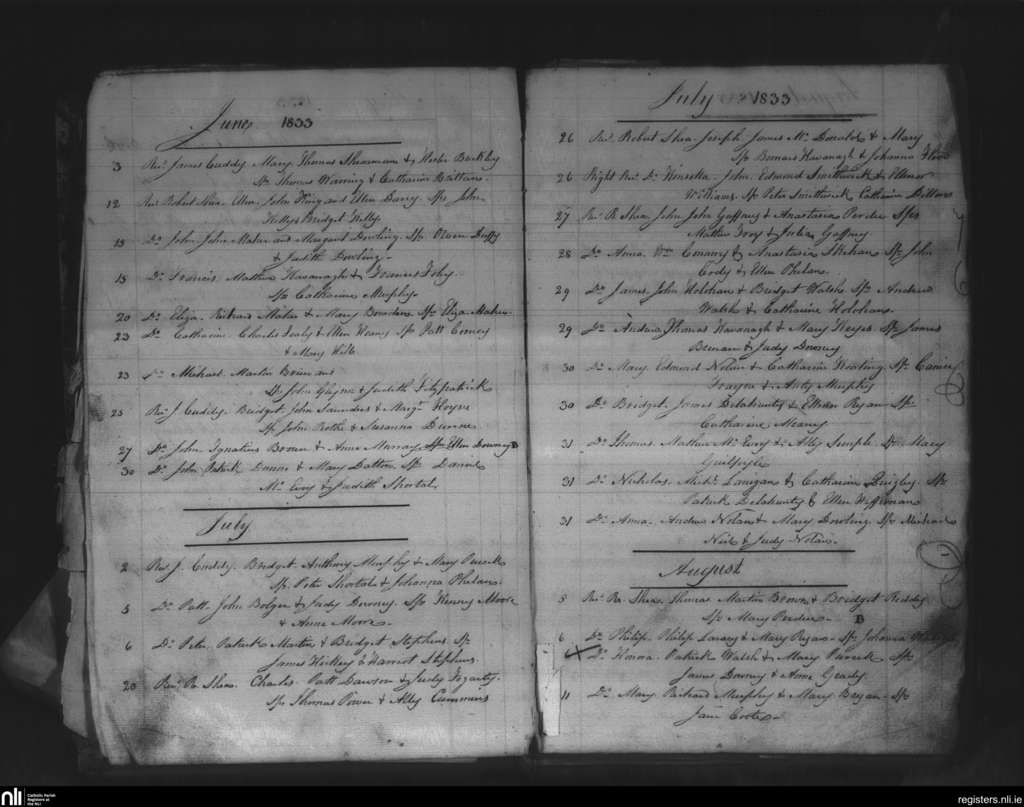 June 1833
3 Revd. James Cuddy. Mary. Thomas Shearman & Hester Buckley
Sps Thomas Warring & Catharine Brittain
12 Revd Robert Shea. Ellen. John King and Ellen Darcy. Sps John
Kelly & Bridget Kelly
13 Do. John. John Maher and Margaret Dowling. Sps. Owen Duffy
& Judith Dowling.
15 Do. Francis. Matthew Kavanagh & Frances Foley.
Sps Catharine Murphy
20 Do. Eliza. Maher & Mary Sps Eliza Maher
23 Do. Catharine. Charles Healy & Ellen Sps Patt
& Mary
23 Do. Michael. Martin Brien and
Sp. John & Judith Fitzpatrick
25 Revd J. Cuddy. Bridget. John Saunders & Margt. Hoyne
Sp. John Rothe & Susanna Dunne
27 Do. John Ignatius Brown & Anne Murray Sps Ellen Downey
30 Do. John. Patrick Dunne & Mary Dalton. Sps. Daniel
Mc. Evoy & Judith Shortal
July
2 Revd J. Cuddy. Bridget. Anthony Murphy & Mary
Sps. Peter Shortal & Johanna Phelan.
5 Do. Patt. John Bolger & Judy Downey. Sps Henry Moore
& Anne Moore.
6 Do. Peter. Patrick Martin & Bridget Stephens Sp.
James Hickey & Harriot Stephens.
20 Revd. R. Shea. Charles. Patt Lawson & Judy Fogarty.
Sps Thomas Power & Ally Cummins
July 1833
26 Revd. Robert Shea. Joseph. James Mc. Donald & Mary
Sp Bernard Kavanagh & Johanna
26 Right Revd. Dr. Kinsella. John. Edmond Smithwick & Ellenor
Williams. Sp. Peter Smithwick Catharine Dillon
27 Revd. R. Shea. John. John Gaffney & Anastasia Perdue Sps
Mathew & Julia Gaffney
28 Do. Anna. Wm & Anastasia Skehan Sp. John
Cody & Ellen Phelan
29 Do. James. John Holohan & Bridget Walsh Sps Andrew
Walsh & Catharine Holohan.
29 Do. Andrew. Thomas Kavanagh & Mary Hayes. Sp. James
Brenan & Judy Downey
30 Do. Mary. Edmund Nolan & Catharine Sp.
& Anty Murphy
30 Do. Bridget. James Delahunty & Ellen Ryan Sp.
Catharine Meany
31 Do. Thomas. Mathew Mc. Evoy & Ally Semple. Sp. Mary
Guilfoyle
31 Do. Nicholas. Michl. Lanigan & Catharine Quigley. Sp.
Patrick Delahunty & Ellen Heffernan
31 Do. Anna. Andrew Nolan & Mary Dowling Sps Michael
Neil & Judy Nolan.
August
5 Revd. R. Shea. Thomas. Martin Brown & Bridget
Sp. Mary Perdue. B
6 Do. Philip. Philip Larney & Mary Ryan. Sp. Johanna
6 Do. Honora. Patrick Walsh & Mary Sp.
James Downey & Anne Grady
11 Do. Mary. Richard Murphy & Mary Bryan. Sp.
Jane Coote.
nli
Catholic Parish
Registers at
the NLI
registers.nli.ie